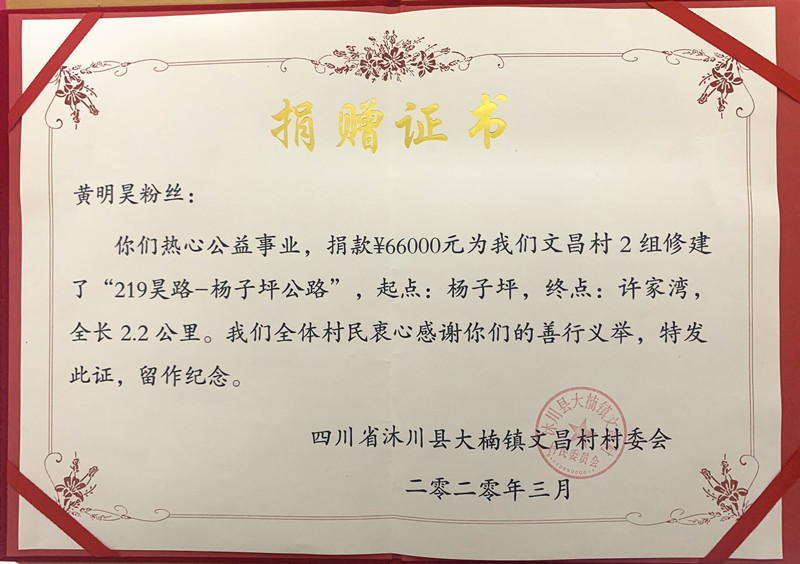 捐赠证书
黄明昊粉丝：
你们热心公益事业，捐款¥66000元为我们文昌村2组修建
了“219昊路—杨子坪公路”，起点：杨子坪，终点：许家湾，
全长2.2公里。我们全体村民衷心感谢你们的善行义举，特发
此证，留作纪念。
四川省沐川县大楠镇文昌村村委会
二零二零年三月
沐川县大楠镇文昌村
村民委员会